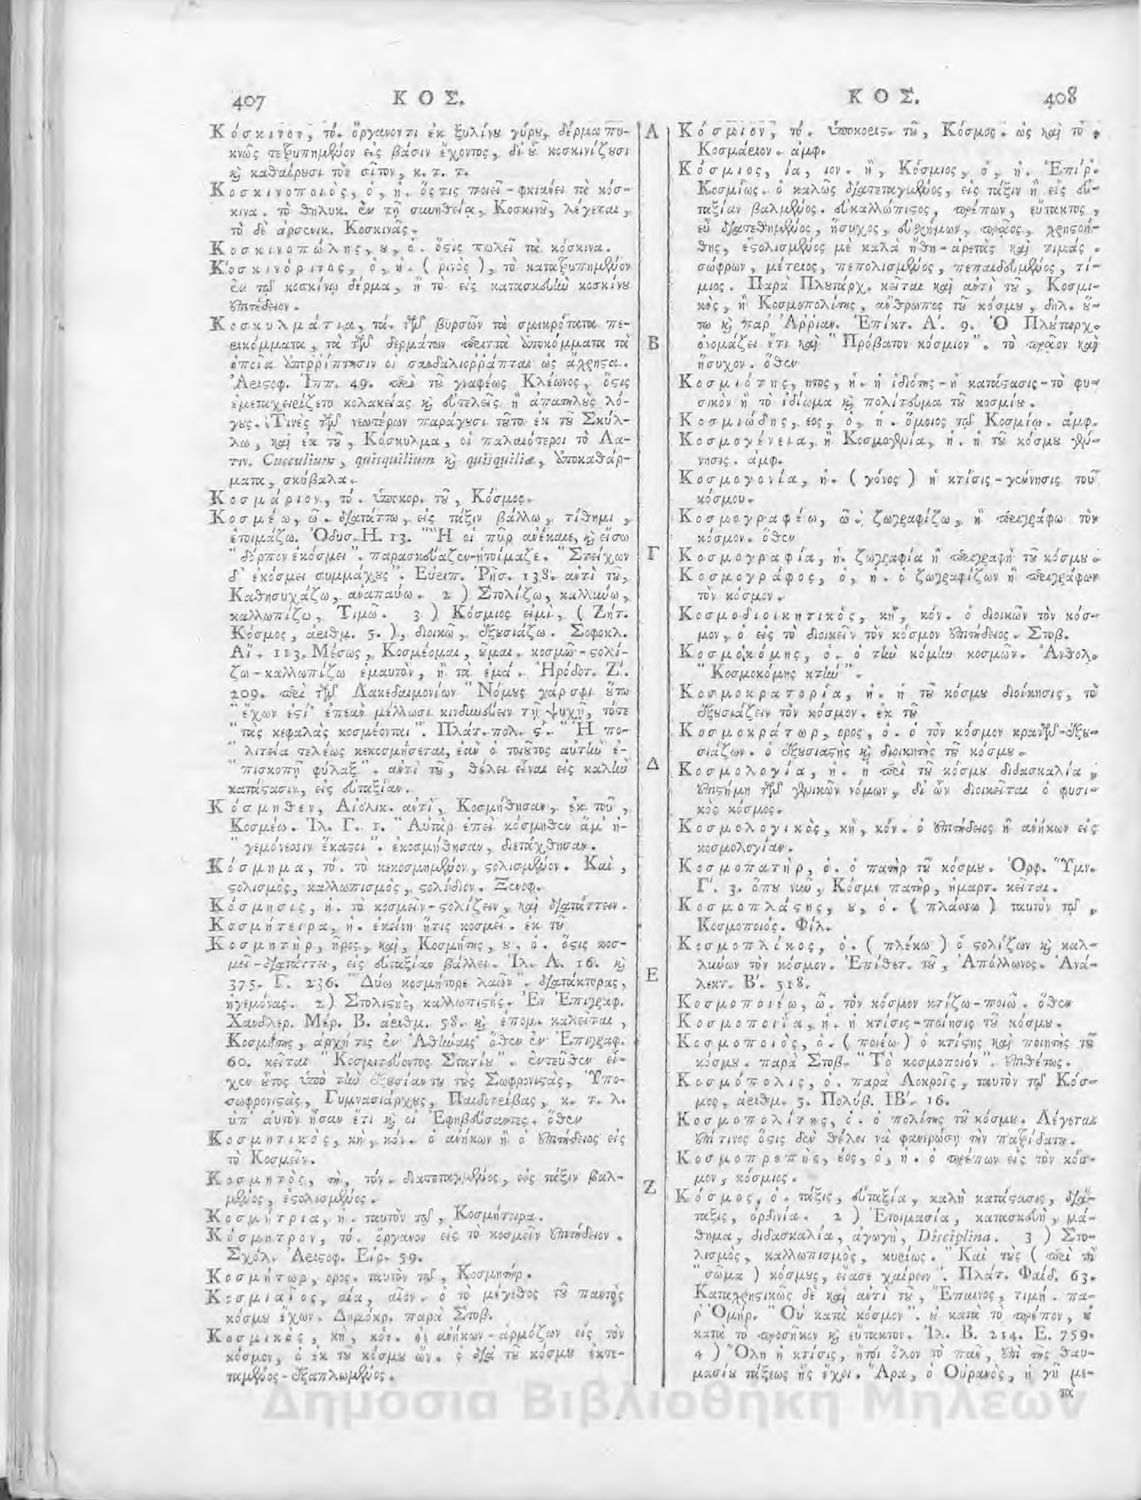 407 ΚΟΣ.
Κόσκινον, τό. ὄργανόν τι ἐκ ξυλίνου γύρου, δέρμα πυ-
κνῶς τετρυπημένον εἰς βάσιν ἔχοντος, δι' οὗ κοσκινίζουσι
καὶ καθαίρουσι τὸν σῖτον, κ. τ. τ.
Κοσκινοποιὸς, ὁ, ἡ. ὅστις ποιεῖ - φκιάνει τὰ κόσ-
κινα. τὸ θηλυκ. ἐν τῇ συνηθείᾳ, Κοσκινοῦ, λέγεται,
τὸ δὲ ἀρσενικ. Κοσκινάς.
Κοσκινοπώλης, ου, ὁ. ὅστις πωλεῖ τὰ κόσκινα.
Κοσκινόριτος, ὁ, ἡ. ( ρινὸς ), τὸ κατατρυπημένον
ἐν τῷ κοσκίνῳ δέρμα, ἢ τὸ εἰς κατασκευὴν κοσκίνου
ἐπιτήδειον.
Κοσκυλμάτια, τά. τῶν βυρσῶν τὰ σμικρότατα πε-
ρικόμματα, τὰ τῶν δερμάτων περιττὰ ὑποκόμματα τὰ
ὁποῖα ἀπορρίπτουσιν οἱ σανδαλιορράπται ὡς ἄχρηστα.
Ἀριστοφ. Ἱππ. 49. περὶ τοῦ γναφέως Κλέωνος, ὅστις
ἐμεταχειρίζετο κολακείας καὶ εὐτελεῖς ἢ ἀπατηλοὺς λό-
γους. Τινὲς τῶν νεωτέρων παράγουσι τοῦτο ἐκ τοῦ Σκύλ-
λω, καὶ ἐκ τοῦ, Κόσκυλμα, οἱ παλαιότεροι τὸ Λα-
τιν. Cusculium, quisquilium καὶ quisquiliæ, ὑποκαθάρ-
ματα, σκύβαλα.
Κοσμάριον, τό. ὑποκορ. τοῦ, Κόσμος.
Κοσμέω, ῶ. διατάττω, εἰς τάξιν βάλλω, τίθημι,
ἑτοιμάζω. Ὀδυσ. Η. 13. "Ἡ οἱ πῦρ ἀνέκαιε, καὶ εἴσω
" δόρπον ἐκόσμει". παρασκεύαζεν - ἡτοίμαζε. "Στείχων
δ' ἐκόσμει συμμάχους". Εὐριπ. Ῥῆσ. 138. ἀντὶ τοῦ,
Καθησυχάζω, ἀναπαύω. 2 ) Στολίζω, καλλύνω,
καλλωπίζω, Τιμῶ. 3 ) Κόσμιος εἰμὶ, ( Ζήτ.
Κόσμος, ἀριθμ. 5. ), διοικῶ, ἐξουσιάζω. Σοφοκλ.
Αἴ. 113. Μέσως, Κοσμέομαι, οῦμαι. κοσμῶ - στολί-
ζω - καλλωπίζω ἐμαυτὸν, ἢ τὰ ἐμά. Ἡρόδοτ. Ζ.
209. περὶ τῶν Λακεδαιμονίων "Νόμος γάρ σφι οὕτω
" ἔχων ἐστὶ ἐπεὰν μέλλωσι κινδυνεύειν τῇ ψυχῇ, τότε
" τὰς κεφαλὰς κοσμέονται". Πλάτ. πολ. ς. "Ἡ πο-
" λιτεία τελέως κεκοσμήσεται, ἐὰν ὁ τοιοῦτος αὐτὴν ἐ-
" πισκοπῇ φύλαξ". ἀντὶ τοῦ, θέλει εἶναι εἰς καλὴν
κατάστασιν, εἰς εὐταξίαν.
Κόσμηθεν, Αἰολικ. ἀντὶ, Κοσμήθησαν, ἐκ τοῦ,
Κοσμέω. Ἰλ. Γ. 1. "Αὐτὰρ ἐπεὶ κόσμηθεν ἅμ' ἡ-
" γεμόνεσσιν ἕκαστοι". ἐκοσμήθησαν, διετάχθησαν.
Κόσμημα, τό. τὸ κεκοσμημένον, στολισμένον. Καὶ,
στολισμὸς, καλλωπισμὸς, στολίδιον. Ξενοφ.
Κόσμησις, ἡ. τὸ κοσμεῖν - στολίζειν, καὶ διατάττειν.
Κοσμήτειρα, ἡ. ἐκείνη ἥτις κοσμεῖ. ἐκ τοῦ
Κοσμητὴρ, ῆρος, καὶ, Κοσμήτης, ου, ὁ. ὅστις κοσ-
μεῖ - διατάττει, εἰς εὐταξίαν βάλλει. Ἰλ. Α. 16. καὶ
375. Γ. 236. "Δύω κοσμήτορε λαῶν". διατάκτορας,
ἡγεμόνας. 2 ) Στολιστὴς, καλλωπιστής. Ἐν Ἐπιγραφ.
Χανδλερ. Μέρ. Β. ἀριθμ. 58. καὶ ἑπομ. καλεῖται,
Κοσμήτης, ἀρχή τις ἐν Ἀθήναις ὅθεν ἐν Ἐπιγραφ.
60. κεῖται "Κοσμητεύοντος Στατίου". ἐντεῦθεν εἶ-
χεν οὗτος ὑπὸ τὴν ἐξουσίαν του τοὺς Σωφρονιστὰς, Ὑπο-
σωφρονιστὰς, Γυμνασιάρχους, Παιδοτρίβας, κ. τ. λ.
ὑπ' αὐτὸν ἦσαν ἔτι καὶ οἱ Ἐφηβεύσαντες. ὅθεν
Κοσμητικὸς, κὴ, κόν. ὁ ἀνήκων ἢ ὁ ἐπιτήδειος εἰς
τὸ Κοσμεῖν.
Κοσμητὸς, τὴ, τόν. διατεταγμένος, εἰς τάξιν βαλ-
μένος, ἐστολισμένος.
Κοσμήτρια, ἡ. ταυτὸν τῷ, Κοσμήτειρα.
Κόσμητρον, τό. ὄργανον εἰς τὸ κοσμεῖν ἐπιτήδειον.
Σχόλ. Ἀριστοφ. Εἰρ. 59.
Κοσμήτωρ, ορος. ταυτὸν τῷ, Κοσμητήρ.
Κοσμιαῖος, αία, αῖον. ὁ τὸ μέγεθος τοῦ παντὸς
κόσμου ἔχων. Δημόκρ. παρὰ Στοβ.
Κοσμικὸς, κὴ, κόν. ὁ ἀνήκων - ἁρμόζων εἰς τὸν
κόσμον, ὁ ἐκ τοῦ κόσμου ὤν. ὁ διὰ τοῦ κόσμου ἐκτε-
ταμένος - ἐξαπλωμένος.
Α
Β
Γ
Δ
Ε
Ζ
ΚΟΣ. 408
Κόσμιον, τό. ὑποκορις. τοῦ, Κόσμος. ὡς καὶ τὸ,
Κοσμάριον. ἀμφ.
Κόσμιος, ία, ιον. ἢ, Κόσμιος, ὁ, ἡ. Ἐπίρ.
Κοσμίως. ὁ καλῶς διατεταγμένος, εἰς τάξιν ἢ εἰς εὐ-
ταξίαν βαλμένος. εὐκαλλώπιστος, πρέπων, εὔτακτος,
εὖ διατεθημένος, ἥσυχος, εὐσχήμων, πρᾶος, χρηστοή-
θης, ἐστολισμένος μὲ καλὰ ἤθη - ἀρετὰς καὶ τιμάς.
σώφρων, μέτριος, πεπολισμένος, πεπαιδευμένος, τί-
μιος. Παρὰ Πλουτάρχ. κεῖται καὶ ἀντὶ τοῦ, Κοσμι-
κὸς, ἢ Κοσμοπολίτης, ἄνθρωπος τοῦ κόσμου, δηλ. οὕ-
τω καὶ παρ' Ἀρριαν. Ἐπίκτ. Α'. 9. Ὁ Πλούταρχ.
ὀνομάζει ἔτι καὶ "Πρόβατον κόσμιον". τὸ πρᾶον καὶ
ἥσυχον. ὅθεν
Κοσμιότης, ητος, ἡ. ἡ ἰδιότης - ἡ κατάστασις - τὸ φυ-
σικὸν ἢ τὸ ἰδίωμα καὶ πολίτευμα τοῦ κοσμίου.
Κοσμιώδης, εος, ὁ, ἡ. ὅμοιος τῷ Κοσμίῳ. ἀμφ.
Κοσμογένεια, ἢ Κοσμογενία, ἡ. ἡ τοῦ κόσμου γέ-
νησις. ἀμφ.
Κοσμογονία, ἡ. ( γόνος ) ἡ κτίσις - γέννησις τοῦ
κόσμου.
Κοσμογραφέω, ῶ. ζωγραφίζω, ἢ περιγράφω τὸν
κόσμον. ὅθεν
Κοσμογραφία, ἡ. ζωγραφία ἢ περιγραφὴ τοῦ κόσμου.
Κοσμογράφος, ὁ, ἡ. ὁ ζωγραφίζων ἢ περιγράφων
τὸν κόσμον.
Κοσμοδιοικητικὸς, κὴ, κόν. ὁ διοικῶν τὸν κόσ-
μον, ὁ εἰς τὸ διοικεῖν τὸν κόσμον ἐπιτήδειος. Στοβ.
Κοσμοκόμης, ὁ. ὁ τὴν κόμην κοσμῶν. Ἀνθολ.
" Κοσμοκόμης κτένα".
Κοσμοκρατορία, ἡ. ἡ τοῦ κόσμου διοίκησις, τὸ
ἐξουσιάζειν τὸν κόσμον. ἐκ τοῦ
Κοσμοκράτωρ, ορος, ὁ. ὁ τὸν κόσμον κρατῶν - ἐξου-
σιάζων. ὁ ἐξουσιαστὴς καὶ διοικητὴς τοῦ κόσμου.
Κοσμολογία, ἡ. ἡ περὶ τοῦ κόσμου διδασκαλία,
ἐπιστήμη τῶν γενικῶν νόμων, δι' ὧν διοικεῖται ὁ φυσι-
κὸς κόσμος.
Κοσμολογικὸς, κὴ, κόν. ὁ ἐπιτήδειος ἢ ἀνήκων εἰς
κοσμολογίαν.
Κοσμοπατὴρ, ὁ. ὁ πατὴρ τοῦ κόσμου. Ὀρφ. Ὕμν.
Γ'. 3. ὅπου νῦν, Κόσμε πατὴρ, ἡμαρτ. κεῖται.
Κοσμοπλάστης, ου, ὁ. ( πλάσσω ) ταυτὸν τῷ,
Κοσμοποιός. Φίλ.
Κοσμοπλόκος, ὁ. ( πλέκω ) ὁ στολίζων καὶ καλ-
λύνων τὸν κόσμον. Ἐπίθετ. τοῦ, Ἀπόλλωνος. Ἀνά-
λεκτ. Β'. 518.
Κοσμοποιέω, ῶ. τὸν κόσμον κτίζω - ποιῶ. ὅθεν
Κοσμοποιΐα, ἡ. ἡ κτίσις - ποίησις τοῦ κόσμου.
Κοσμοποιὸς, ὁ. ( ποιέω ) ὁ κτίστης καὶ ποιητὴς τοῦ
κόσμου. παρὰ Στοβ. "Τὸ κοσμοποιόν". ἐπιθέτως.
Κοσμόπολις, ὁ. παρὰ Λοκροῖς, ταυτὸν τῷ Κόσ-
μος, ἀριθμ. 5. Πολύβ. ΙΒ'. 16.
Κοσμοπολίτης, ὁ. ὁ πολίτης τοῦ κόσμου. Λέγεται
ἐπί τινος ὅστις δὲν θέλει νὰ φανερώσῃ τὴν πατρίδα του.
Κοσμοπρεπὴς, έος, ὁ, ἡ. ὁ πρέπων εἰς τὸν κόσ-
μον, κόσμιος.
Κόσμος, ὁ. τάξις, εὐταξία, καλὴ κατάστασις, διά-
ταξις, ὀρδινία. 2 ) Ἑτοιμασία, κατασκευὴ, μά-
θημα, διδασκαλία, ἀγωγὴ, Disciplina. 3 ) Στο-
λισμὸς, καλλωπισμὸς, κυρίως. "Καὶ τοὺς ( περὶ τὸ
" σῶμα ) κόσμους, εἴασε χαίρειν". Πλάτ. Φαίδ. 63.
Καταχρηστικῶς δὲ καὶ ἀντὶ τοῦ, Ἔπαινος, τιμή. πα-
ρ' Ὁμήρ. "Οὐ κατὰ κόσμον". οὐ κατὰ τὸ πρέπον, οὐ
κατὰ τὸ προσῆκον καὶ εὔτακτον. Ἰλ. Β. 214. Ε. 759.
4 ) Ὅλη ἡ κτίσις, ἤτοι ὅλον τὸ πᾶν, ἐπὶ τῆς θαυ-
μασίου τάξεως ἧς ἔχει. Ἄρα, ὁ Οὐρανὸς, ἡ γῆ με-
τα
Δημόσια Βιβλιοθήκη Μηλεών